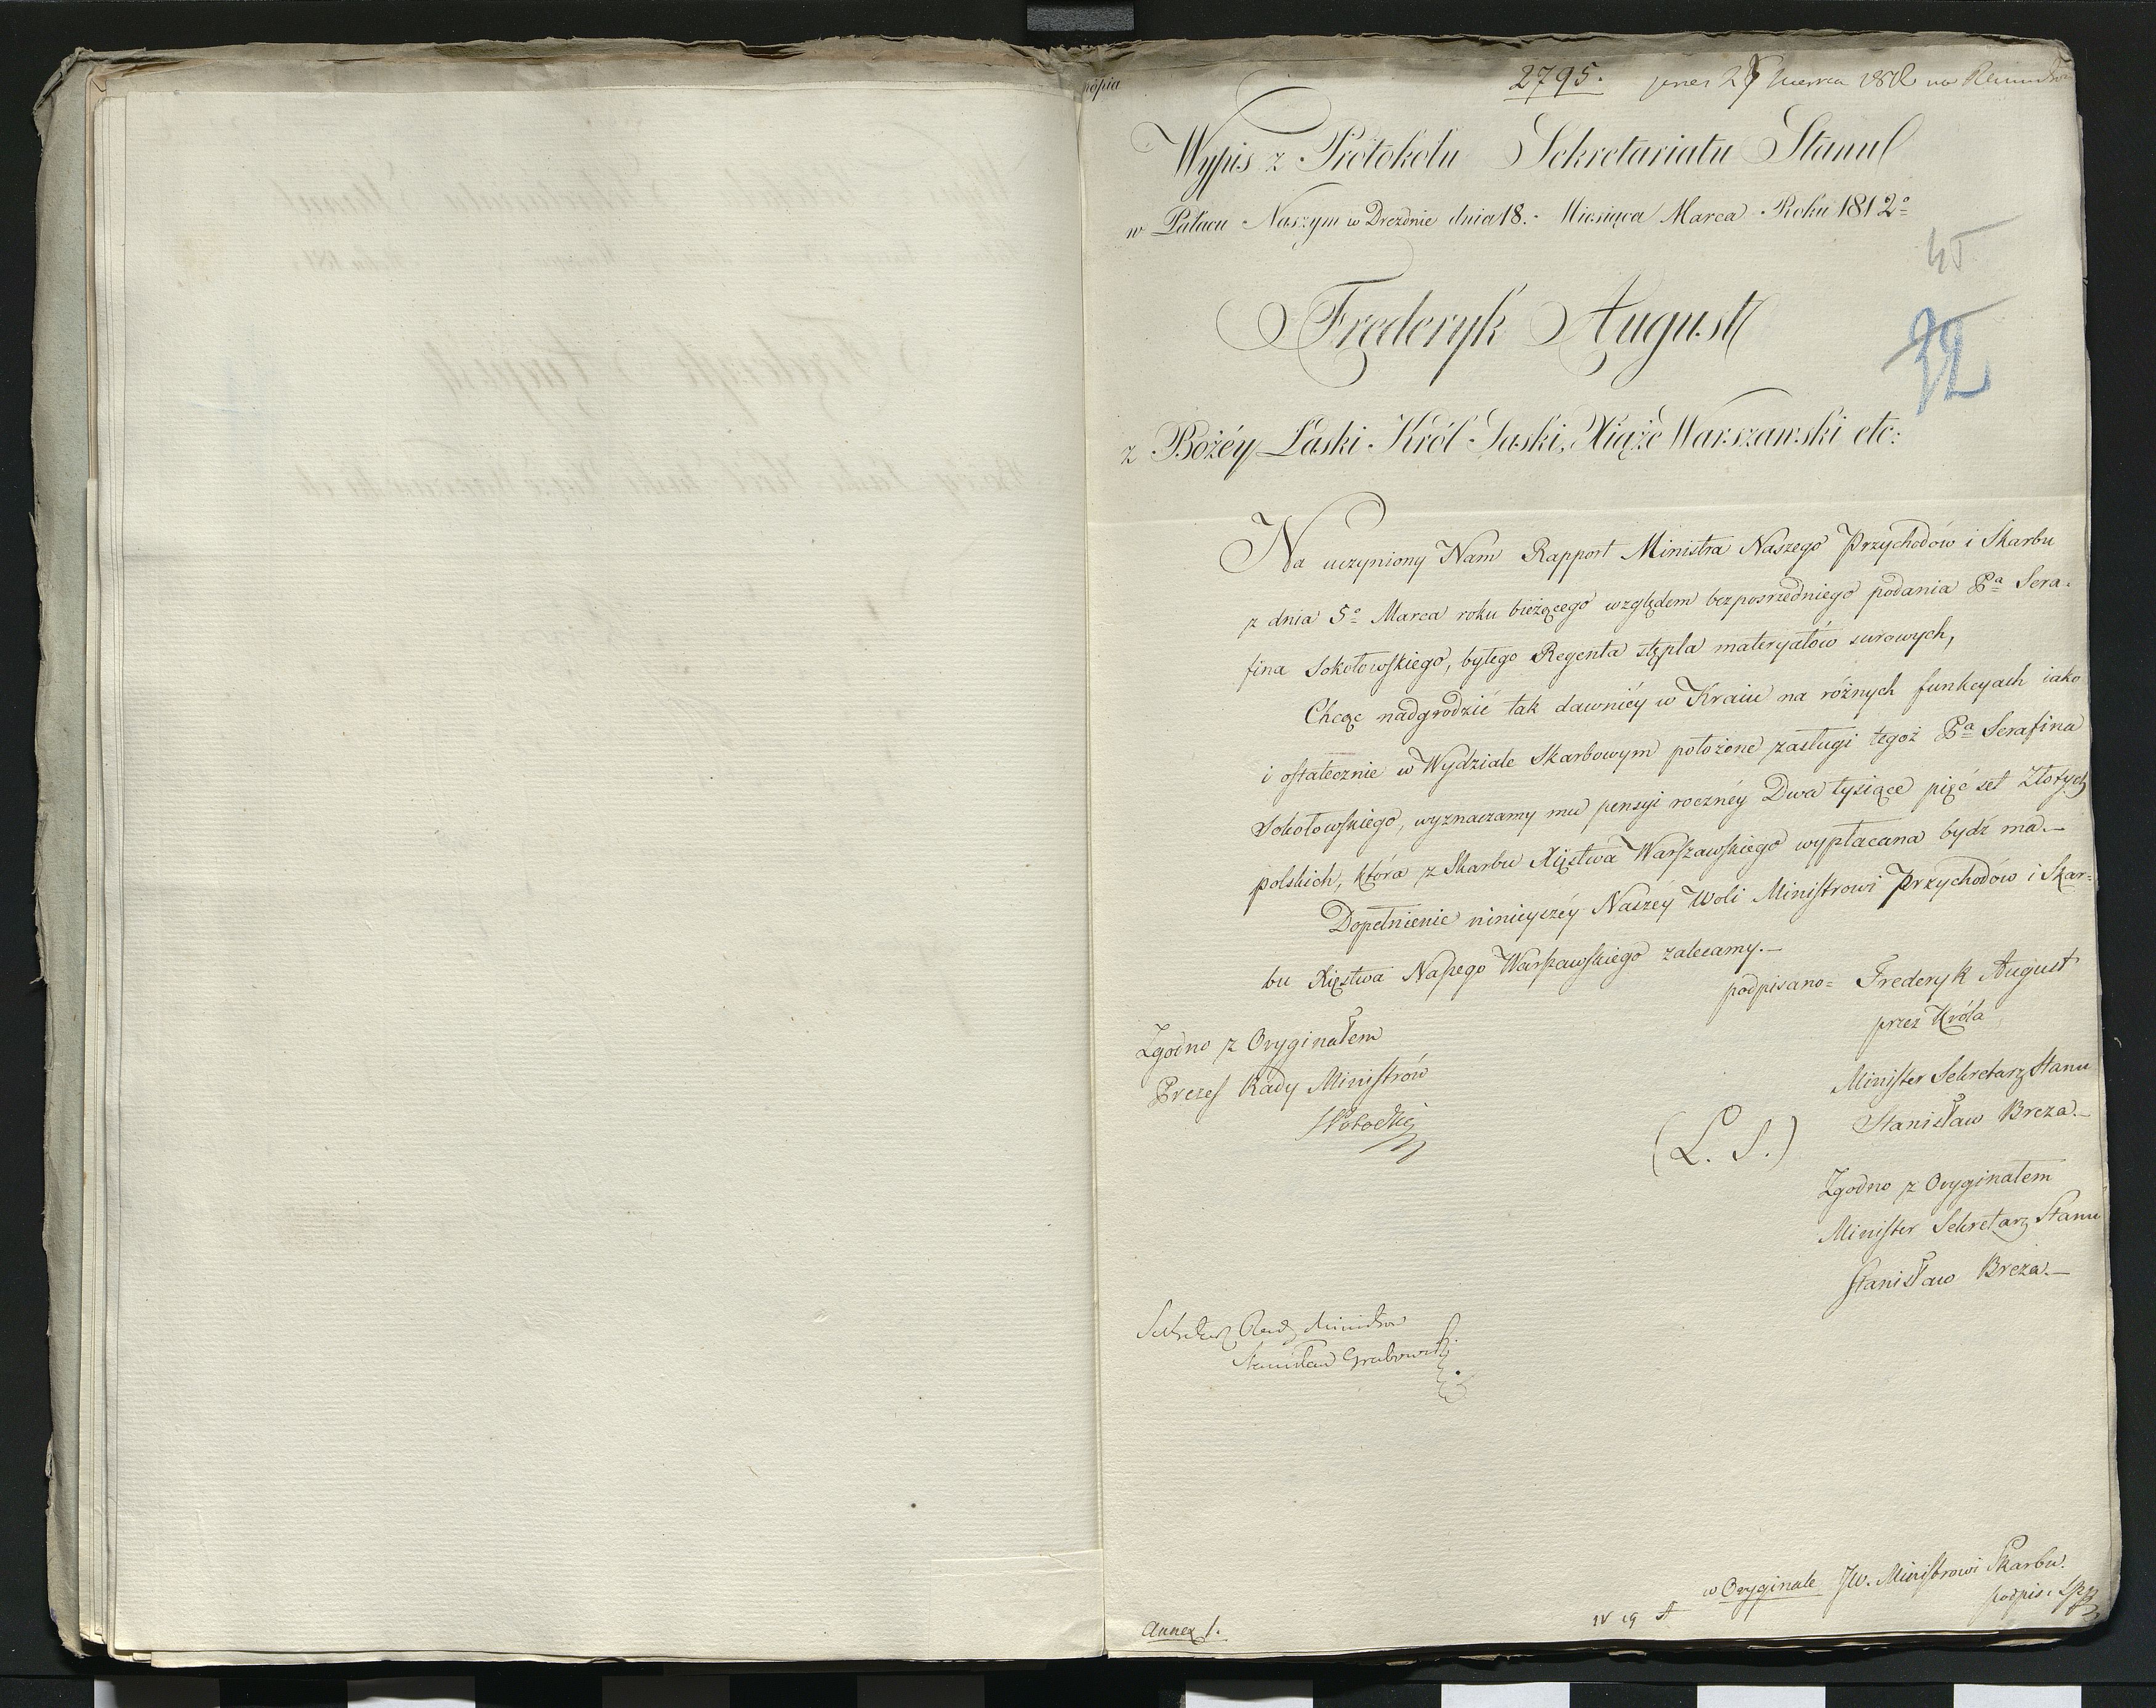 kopia
2795. prez 27 Marca 1812
Wypis z Protokółu Sekretariatu Stanu
w Pałacu Naszym w Dreznie dnia 18. Miesiąca Marca Roku 1812º
45
32
Frederyk August
z Bożéy Łaski Król Saski, Xiąże Warszawski etc:
Na uczyniony Nam Rapport Ministra Naszego Przychodów i Skarbu
z dnia 5º Marca roku bieżącego względem bezpośrzedniego podania Pª Sera-
fina Sokołowskiego, byłego Regenta stępla materyałów surowych,
Chcąc nadgrodzić tak dawniéy w Kraiu na różnych funkcyach iako
i ostatecznie w Wydziale Skarbowym położone zasługi tegoż Pª Serafina
Sokołowskiego, wyznaczamy mu pensyi rocznéy Dwa tysiące pięć set Złotych
polskich, która z Skarbu Xięstwa Warszawskiego wypłacana bydź ma.—
Dopełnienie ninieyszéy Naszéy Woli Ministrowi Przychodów i Skar=
bu Xięstwa Naszego Warszawskiego zalecamy.—
podpisano= Frederyk August
przez Króla
Minister Sekretarz Stanu
(L. S.) Stanisław Breza.—
Zgodno z Oryginałem
Prezes Rady Ministrów
SPotocki
Zgodno z Oryginałem
Minister Sekretarz Stanu
Stanisław Breza.—
Sekretarz Rady Ministrów
Stanisław Grabowski
w Oryginale JW. Ministrowi Skarbu.
podpis:
IV 19 A
Annex 1.